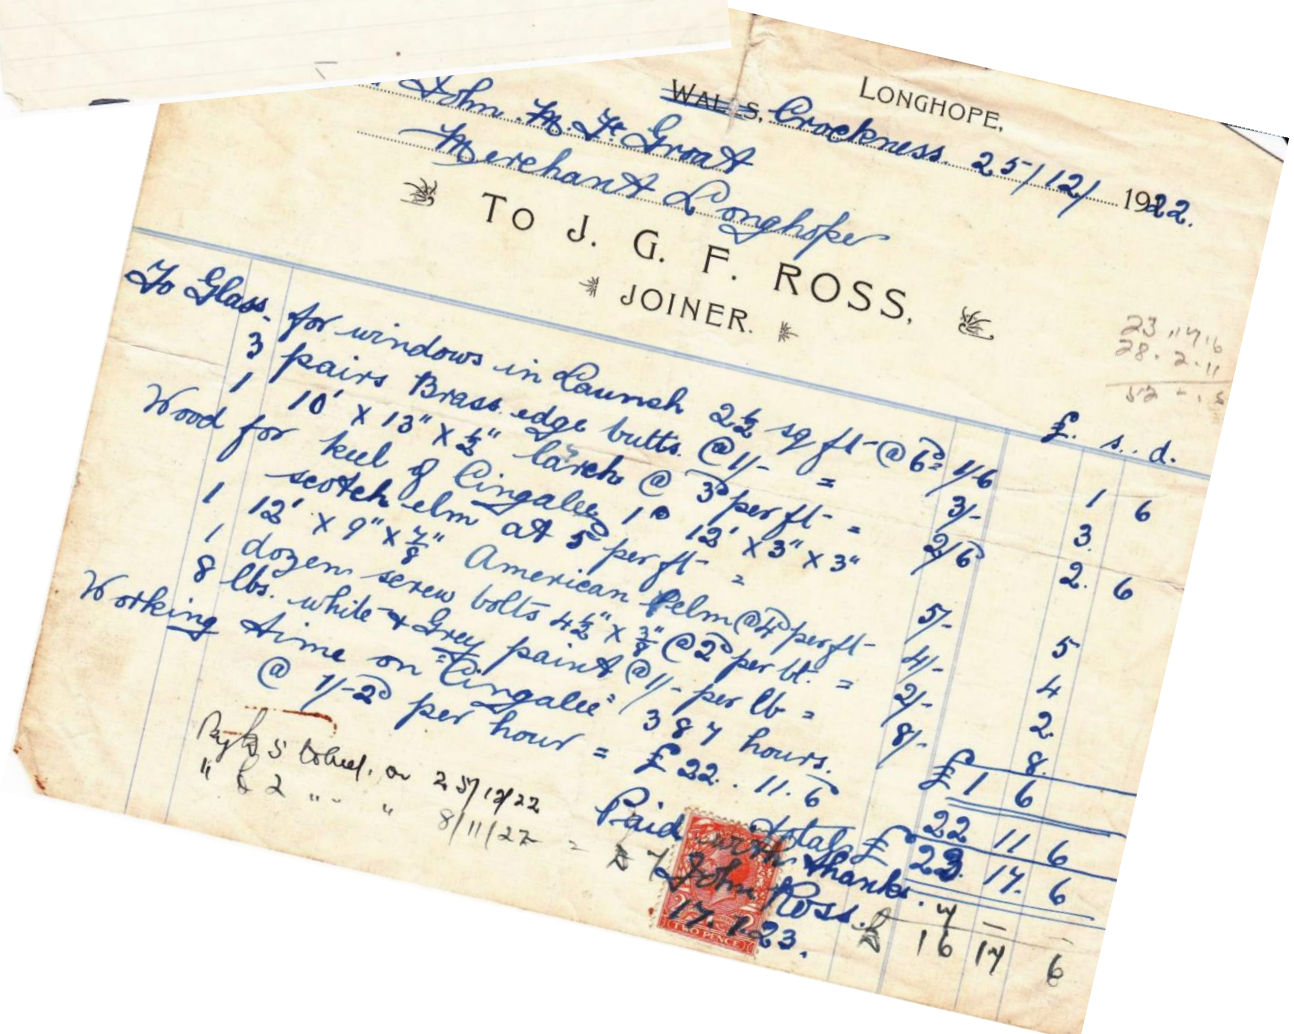 LONGHOPE,
WALLS, Crockness. 25/12/ 1922.
John M. Ft. Groat
Merchant Longhope
TO J. G. F. ROSS,
JOINER.
23 " 17 " 6
28 . 2 . 11
£. s. d.
To Glass for windows in Launch 2½ sq ft @ 6d = 1/6 1 6
3 pairs Brass edge butts @ 1/- = 3/- 3.
1 10' x 13" x ½" larch @ 3d per ft = 2/6 2. 6
Wood for keel of Cingalee 1 12' x 3" x 3"
scotch elm at 5d per ft = 5/- 5
1 12' x 9" x ⅞" American elm @ 4d per ft 4/- 4
1 dozen screw bolts 4½" x ⅜" @ 2d per bt. = 2/- 2.
8 lbs. white & Grey paint @ 1/- per lb = 8/- 8.
£1 6
Working time on "Cingalee" 387 hours.
@ 1/-2d per hour = £22 . 11. 6 22 11 6
total £ 23. 17. 6
Paid with thanks.
John Ross.
17.1.23.
TWO PENCE
£5 on 25/12/22
" £2 " " 8/11/22 = £7
7 — —
£ 16 17 6